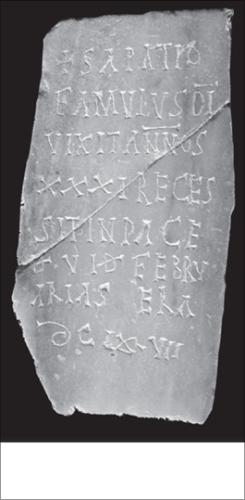 + SAPATIO
FAMVLVS DI
VIXIT ANNOS
XXXXI RECES
SIT IN PACE
D VID FEBRV
ARIAS ERA